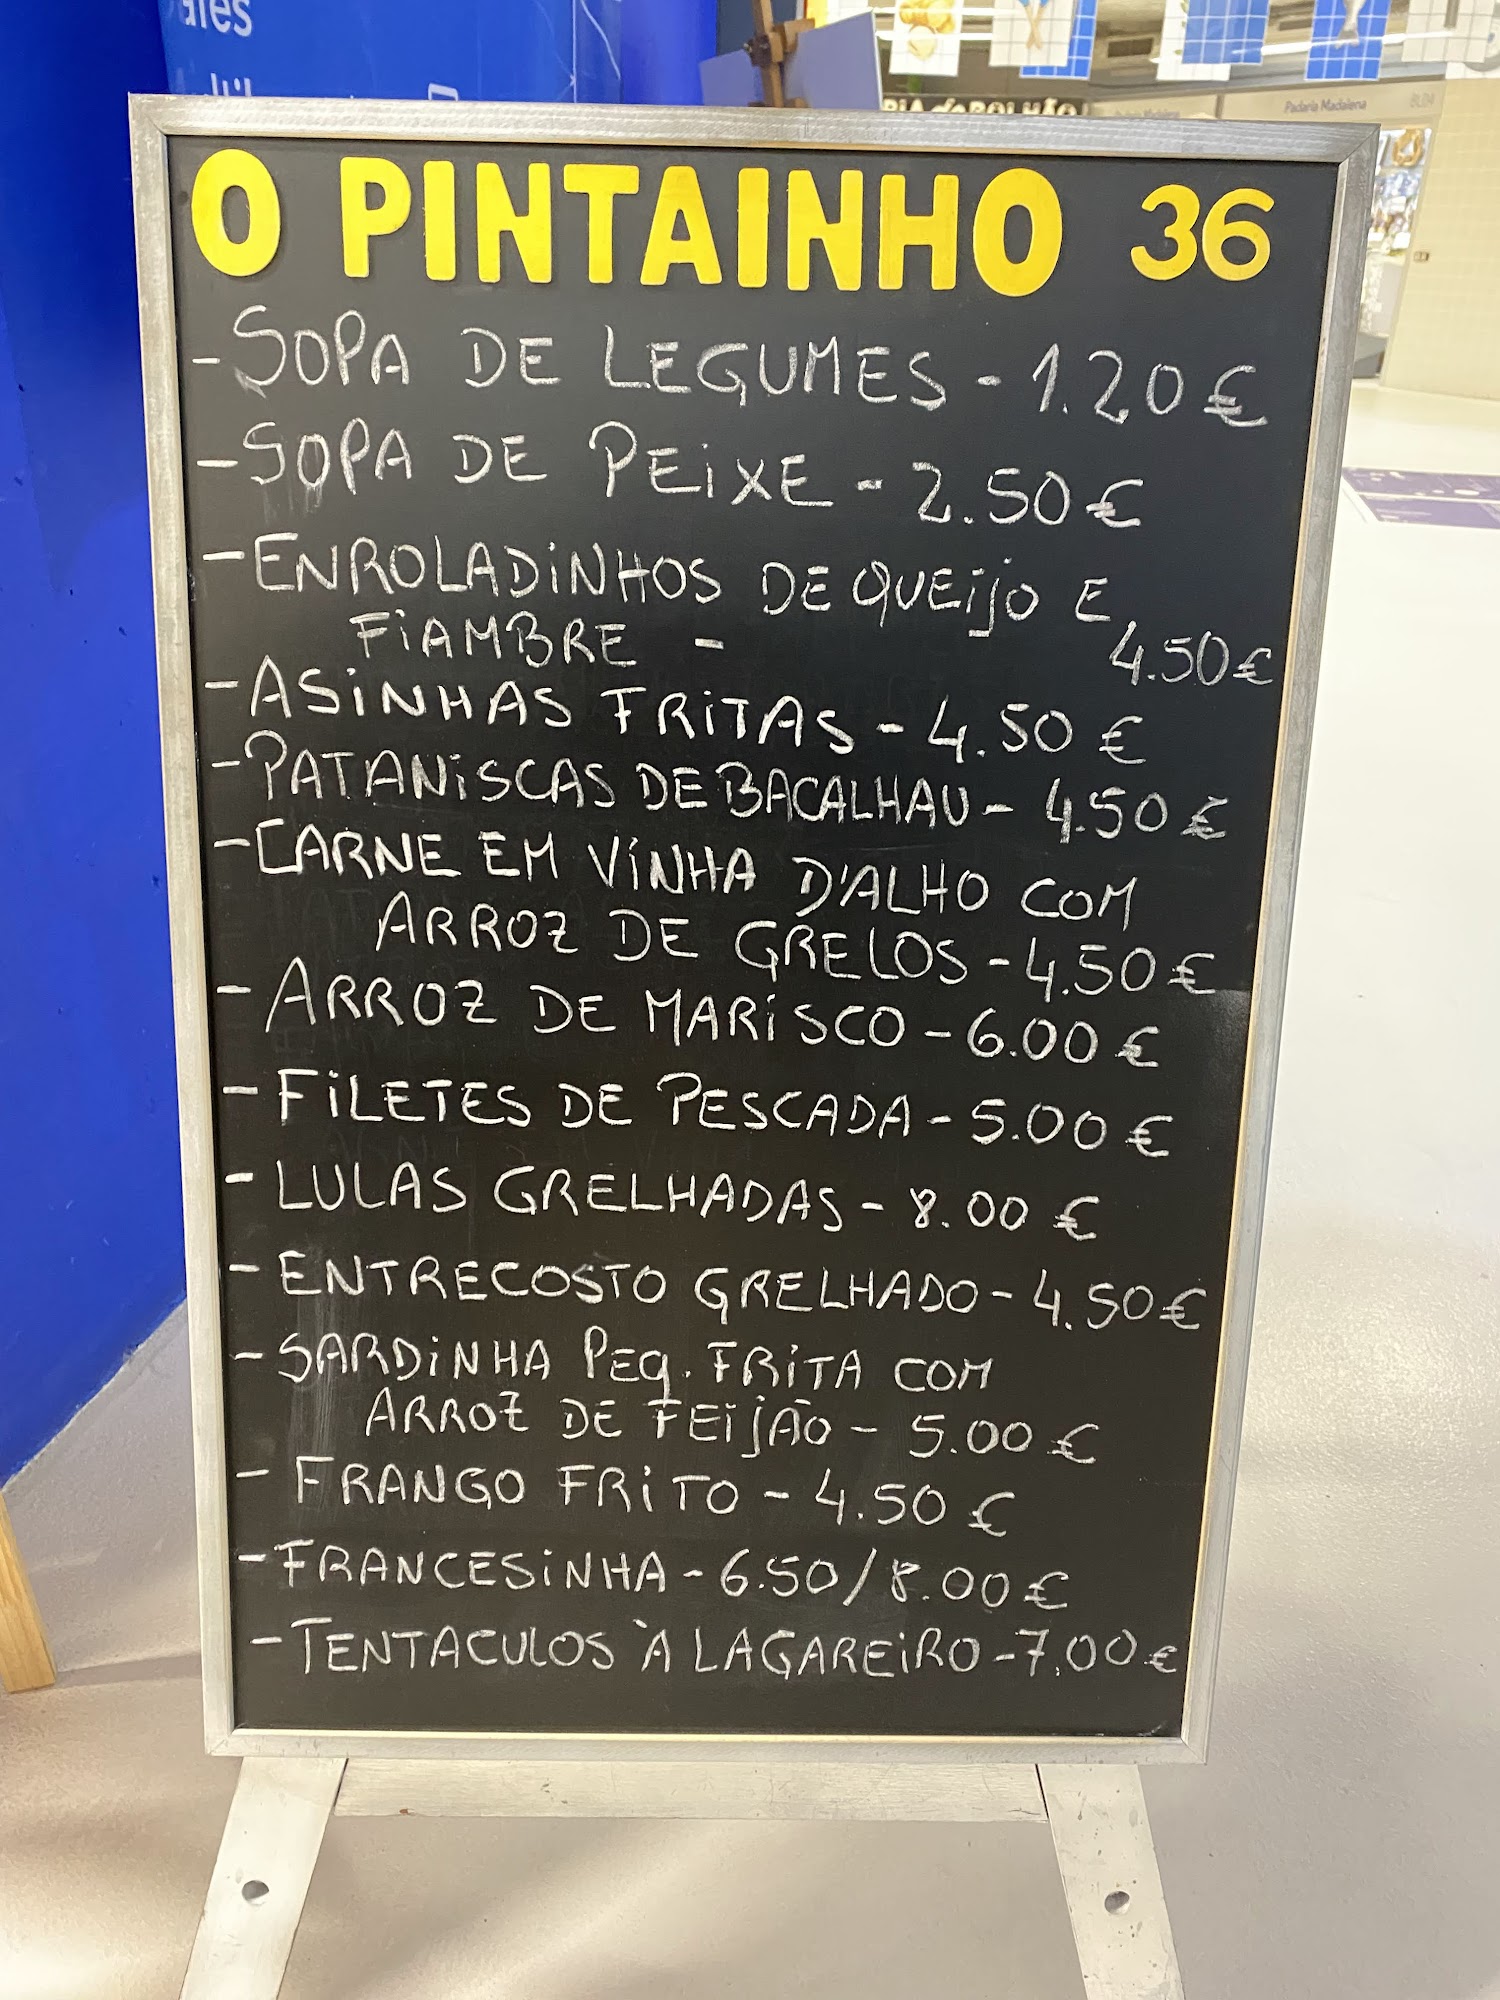 ales
Padaria Madalena
O PINTAINHO 36
- SOPA DE LEGUMES - 1.20 €
- SOPA DE PEIXE - 2.50 €
- ENROLADINHOS DE QUEIJO E
FIAMBRE - 4.50 €
- ASINHAS FRITAS - 4.50 €
- PATANISCAS DE BACALHAU - 4.50 €
- CARNE EM VINHA D'ALHO COM
ARROZ DE GRELOS - 4.50 €
- ARROZ DE MARISCO - 6.00 €
- FILETES DE PESCADA - 5.00 €
- LULAS GRELHADAS - 8.00 €
- ENTRECOSTO GRELHADO - 4.50 €
- SARDINHA PEQ. FRITA COM
ARROZ DE FEIJÃO - 5.00 €
- FRANGO FRITO - 4.50 €
- FRANCESINHA - 6.50/8.00 €
- TENTACULOS À LAGAREIRO - 7.00 €